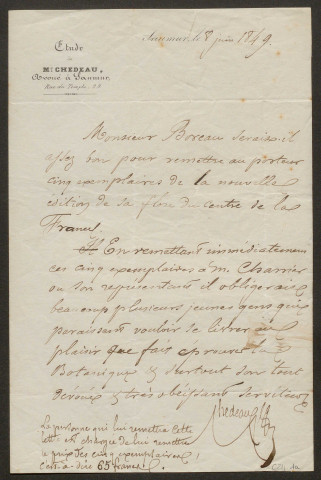 Etude
de
Mᵉ CHEDEAU,
Avoué à Saumur,
Rue du Temple, 22
Saumur, le 8 juin 1849.
Monsieur Boreau serait-il
assez bon pour remettre au porteur
cinq exemplaires de la nouvelle
edition de sa flore du centre de la
France.
En remettant immédiatement
ces cinq exemplaires à m. Charrier
ou son représentant il obligerait
beaucoup plusieurs jeunes gens qui
paraissent vouloir se livrer au
plaisir que fait éprouver la
Botanique & surtout son tout
dévoué & très obéissant serviteur
Chedeau
La personne qui lui remettra cette
lettre est chargée de lui remettre
le prix des cinq exemplaires
c'est à dire 65 francs.